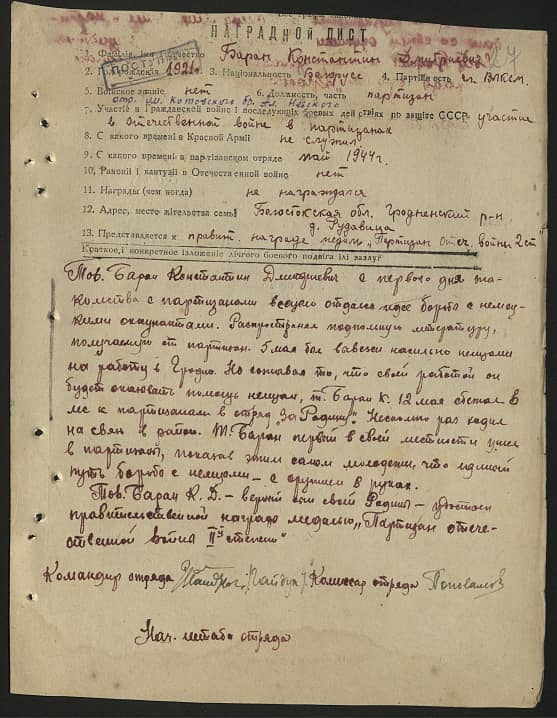 НАГРАДНОЙ ЛИСТ
1. Фамилия, имя, отчество Баран Константин Дмитриевич
2. Год рождения 1921г. 3. Национальность Белорусс 4. Партийность чл. ВЛКСМ.
5. Воинское звание нет 6. Должность, часть партизан
отр. им. Котовского бр. Ал. Невского
7. Участие в гражданской войне и последующих боевых действиях по защите СССР участие
в Отечественной войне в партизанах
8. С какого времени в Красной Армии не служил
9. С какого времени в партизанском отряде май 1944г.
10. Ранения и контузии в Отечественной войне нет
11. Награды (чем когда) не награждался
12. Адрес, место жительства семьи Белостокская обл. Гродненский р-н.
д. Рудавица
13. Представляется к правит. награде медаль „Партизан Отеч. войны 2 ст"
Краткое, конкретное изложение личного боевого подвига или заслуг
Тов. Баран Константин Дмитриевич с первого дня зна-
комства с партизанами всецело отдался идее борьбы с немец-
кими оккупантами. Распространял подпольную литературу,
получаемую от партизан. 5 мая был вывезен насильно немцами
на работу в Гродно. Но сознавая то, что своей работой он
будет оказывать помощь немцам, т. Баран К. 12 мая сбежал в
лес к партизанам в отряд „За Родину". Несколько раз ходил
на связь в район. Т. Баран первый в своей местности ушел
в партизаны, показав этим самым молодежи, что единый
путь борьбы с немцами – с оружием в руках.
Тов. Баран К. Д. – верный сын своей Родины – удостоен
правительственной награды медалью „Партизан отече-
ственной войны II й степени"
Командир отряда /Гайдук/. Комиссар отряда
Нач. штаба отряда